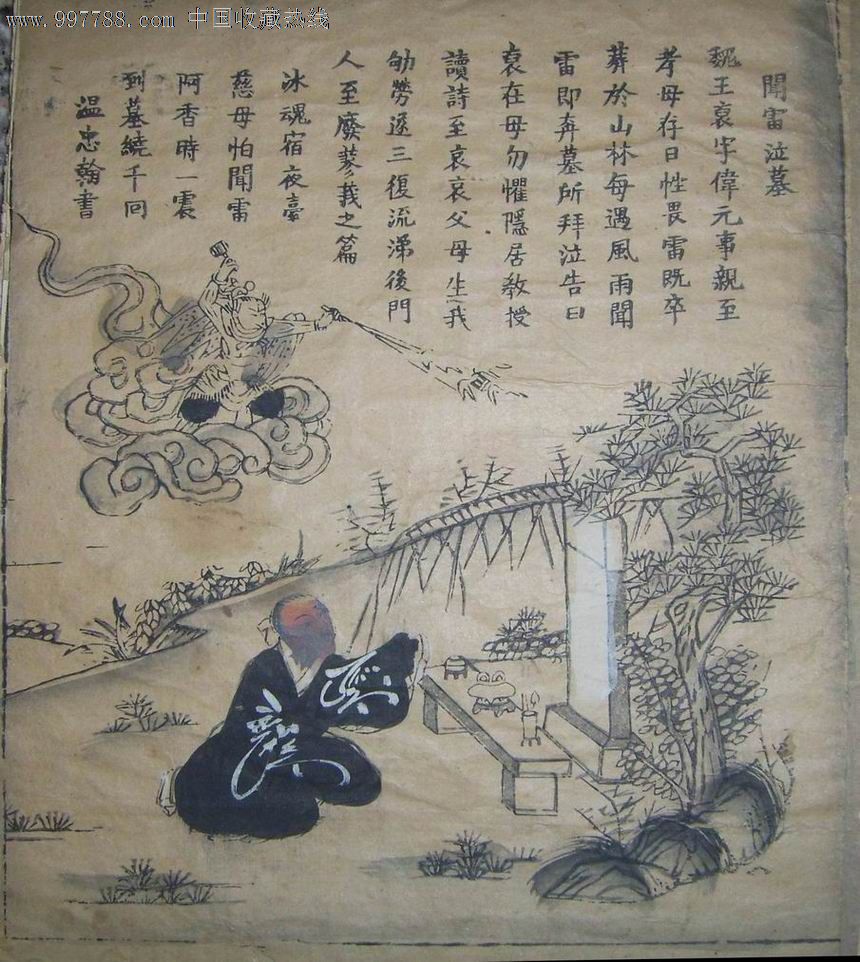 www.997788.com 中国收藏热线
聞雷泣墓
魏王裒字偉元事親至
孝母存日性畏雷既卒
葬於山林每遇風雨聞
雷即奔墓所拜泣告曰
裒在母勿懼隱居教授
讀詩至哀哀父母生我
劬勞遂三復流涕後門
人至廢蓼莪之篇
冰魂宿夜臺
慈母怕聞雷
阿香時一震
到墓繞千回
温忠翰書